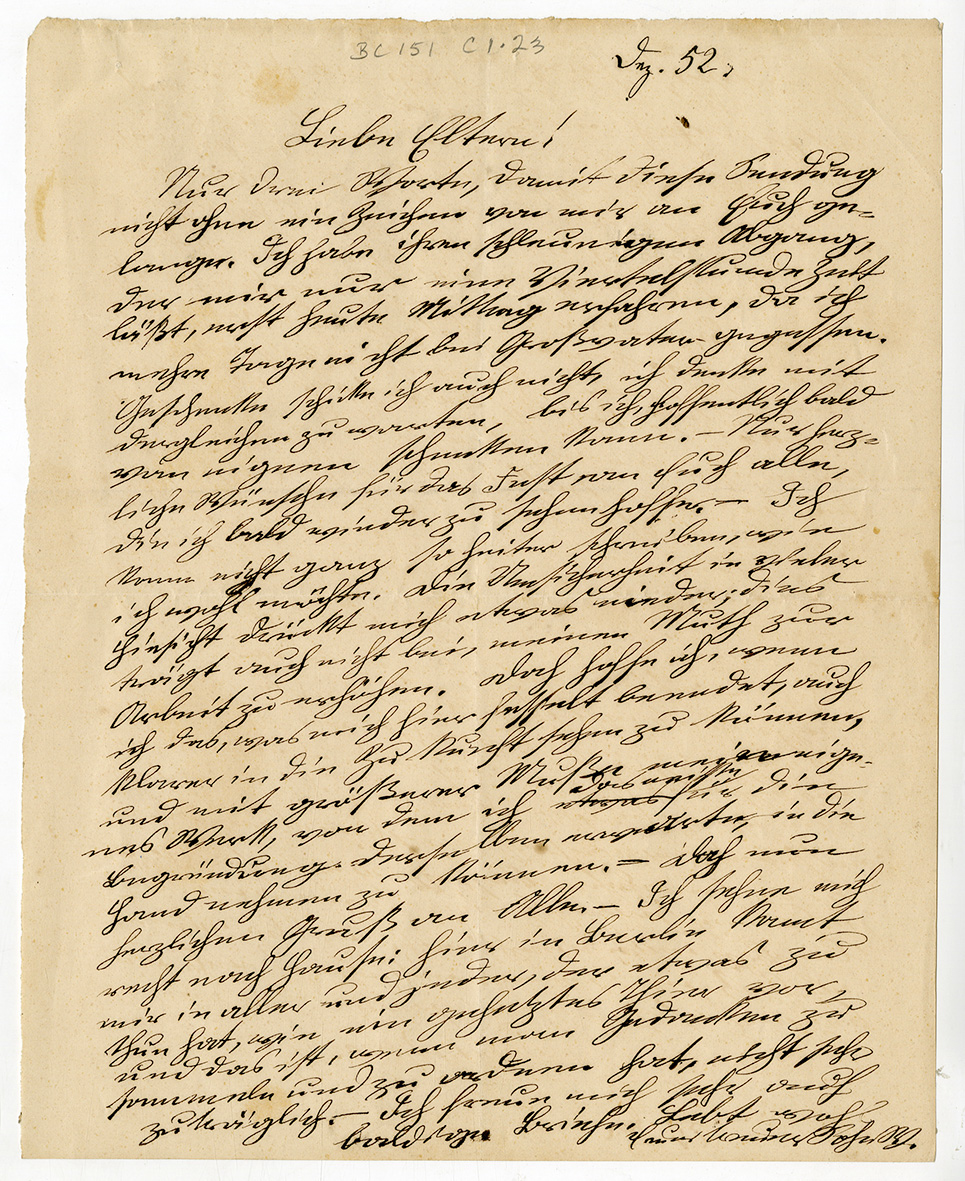 BC 151 C1.23
Dez. 52.
Liebe Eltern!
Nur drei Worte, damit diese Sendung
nicht ohne ein Zeichen von mir an Euch ge-
lange. Ich habe ihren schleunigen Abgang,
der mir nur eine Viertelstunde Zeit
läßt, erst heute Mittag erfahren, da ich
mehre Tage nicht bei Großvater gegessen.
Geschenke schicke ich auch nicht, ich denke mit
dergleichen zu warten, bis ich hoffentlich bald
von eignem schenken kann. – Nur herz-
liche Wünsche für das Fest an Euch alle,
die ich bald wieder zu sehen hoffe. – Ich
kann nicht ganz so heiter schreiben, wie
ich wohl möchte. Die Unsicherheit in vieler
Hinsicht drückt mich etwas nieder; dies
trägt auch nicht bei, meinen Muth zur
Arbeit zu erhöhen. Doch hoffe ich, wenn
ich das, was mich hier fesselt beendet, auch
klarer in die Zukunft sehen zu können,
und mit größerer Muße mein eige-
nes Werk, von dem ich das meiste für die
Begründung derselben erwarte, in die
Hand nehmen zu können. – Doch nun
herzlichen Gruß an Alle. – Ich sehne mich
recht nach Hause: hier in Berlin kommt
mir in aller und jeder, der etwas zu
thun hat, wie ein gehetztes Thier vor,
und das ist, wenn man Gedanken zu
sammeln und zu ordnen hat, nicht sehr
zuträglich. – Ich freue mich sehr auf
baldige Briefe. Lebt wohl
Euer treuer Sohn W.